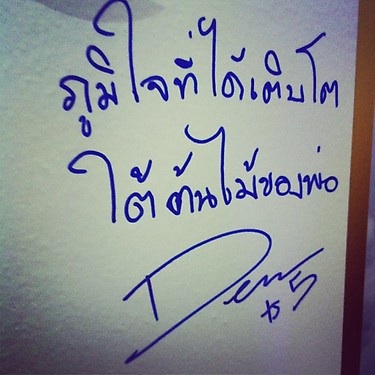 ภูมิใจที่ได้เติบโต
ใต้ต้นไม้ของพ่อ